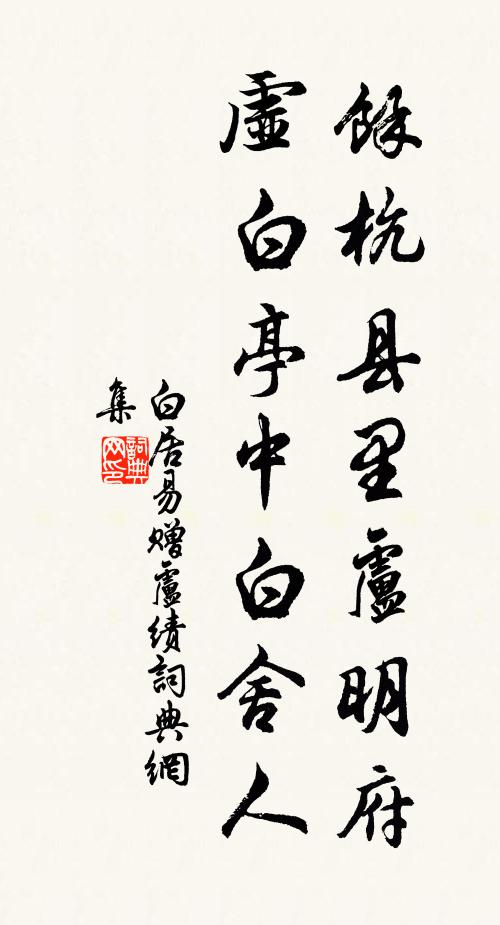 餘杭县里盧明府
虛白亭中白舍人
白居易贈盧績詞典網
集
詞典网印